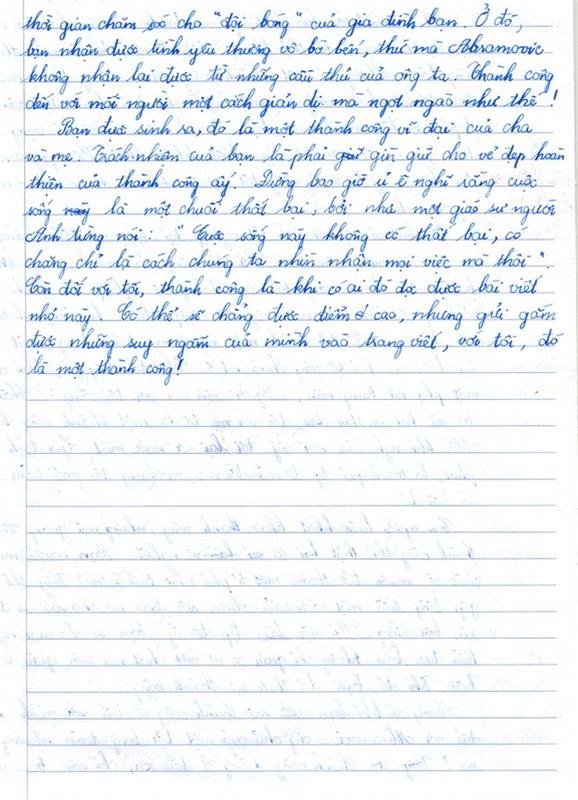 thời gian chăm sóc cho "đội bóng" của gia đình bạn. Ở đó,
bạn nhận được tình yêu thương vô bờ bến, thứ mà Abramovic
không nhận lại được từ những cầu thủ của ông ta. Thành công
đến với mỗi người một cách giản dị mà ngọt ngào như thế!
Bạn được sinh ra, đó là một thành công vĩ đại của cha
và mẹ. Trách nhiệm của bạn là phải giữ gìn giữ cho vẻ đẹp hoàn
thiện của thành công ấy. Đừng bao giờ ủ ê nghĩ rằng cuộc
sống này là một chuỗi thất bại, bởi như một giáo sư người
Anh từng nói: "Cuộc sống này không có thất bại, có
chăng chỉ là cách chúng ta nhìn nhận mọi việc mà thôi".
Còn đối với tôi, thành công là khi có ai đó đọc được bài viết
nhỏ này. Có thể sẽ chẳng được điểm cao, nhưng gửi gắm
được những suy ngẫm của mình vào trang viết, với tôi, đó
là một thành công!